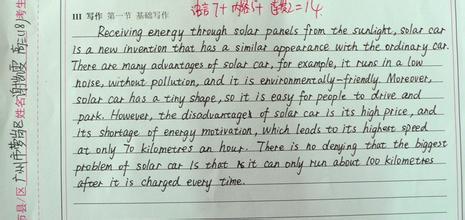 语言7+内容5+连贯2=14
III 写作 第一节 基础写作
Receiving energy through solar panels from the sunlight, solar car
is a new invention that has a similar appearance with the ordinary car.
There are many advantages of solar car, for example, it runs in a low
noise, without pollution, and it is environmentally-friendly. Moreover,
solar car has a tiny shape, so it is easy for people to drive and
park. However, the disadvantages of solar car is its high price, and
its shortage of energy motivation, which leads to its highest speed
at only 70 kilometres an hour. There is no denying that the biggest
problem of solar car is that it can only run about 100 kilometres
after it is charged every time.
市县/区 广州市萝岗区 姓名 高二(8) 考生